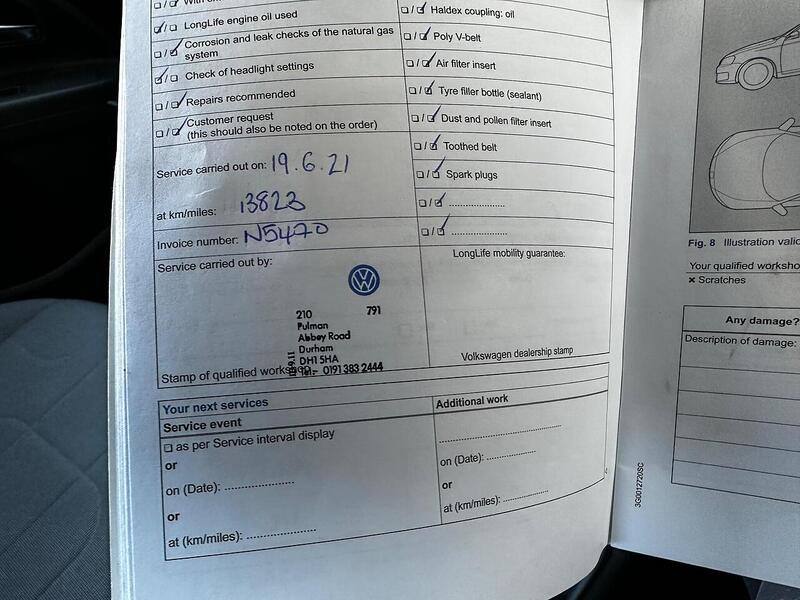 LongLife engine oil used
Corrosion and leak checks of the natural gas
system
Check of headlight settings
Repairs recommended
Customer request
(this should also be noted on the order)
Service carried out on: 19.6.21
at km/miles: 13823
Invoice number: N5470
Service carried out by:
VW
210 791
Pulman
Abbey Road
Durham
DH1 5HA
Tel:- 0191 383 2444
Stamp of qualified
Haldex coupling: oil
Poly V-belt
Air filter insert
Tyre filler bottle (sealant)
Dust and pollen filter insert
Toothed belt
Spark plugs
LongLife mobility guarantee:
Volkswagen dealership stamp
Your next services
Service event
as per Service interval display
or
on (Date):
or
at (km/miles):
Additional work
on (Date):
or
at (km/miles):
3G0012720SC
Fig. 8 Illustration
Your qualified
× Scratches
Any damage?
Description of damage: